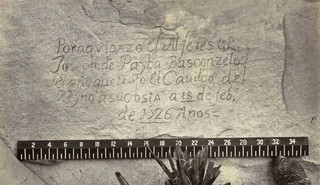 Por aqui pazo el Alferes Dn
Joseph de Payba Basconzelos
el año que trujo el Cauildo del
Reyno a su costa a 18 de feb,
de 1526 Años =
2 4 6 8 10 12 14 16 18 20 22 24 26 28 30 32 34